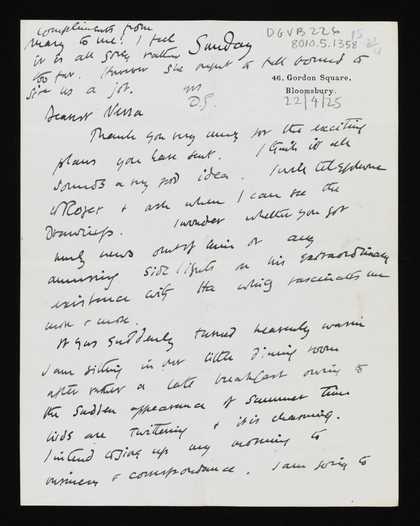 compliments from
Mary to me! I feel Sunday
it is all going rather
too far. However she ought to feel bound to
give us a job.
DGVB 226
8010.5.1358
46, Gordon Square,
Bloomsbury.
22/4/25
D.G.
Dearest Nessa
Thank you very much for the exciting
plans you have sent. I think it all
sounds a very good idea. I will telephone
to Roger & ask when I can see the
Drawings. I wonder whether you got
much news out of him or any
amusing side lights on his extraordinary
existence with Ha which fascinates me
more & more.
It has suddenly turned heavenly warm
I am sitting in our little dining room
after rather a late breakfast owing to
the sudden appearance of summer time
birds are twittering & it is charming.
I intend to give up my morning to
business & correspondance. I am going to